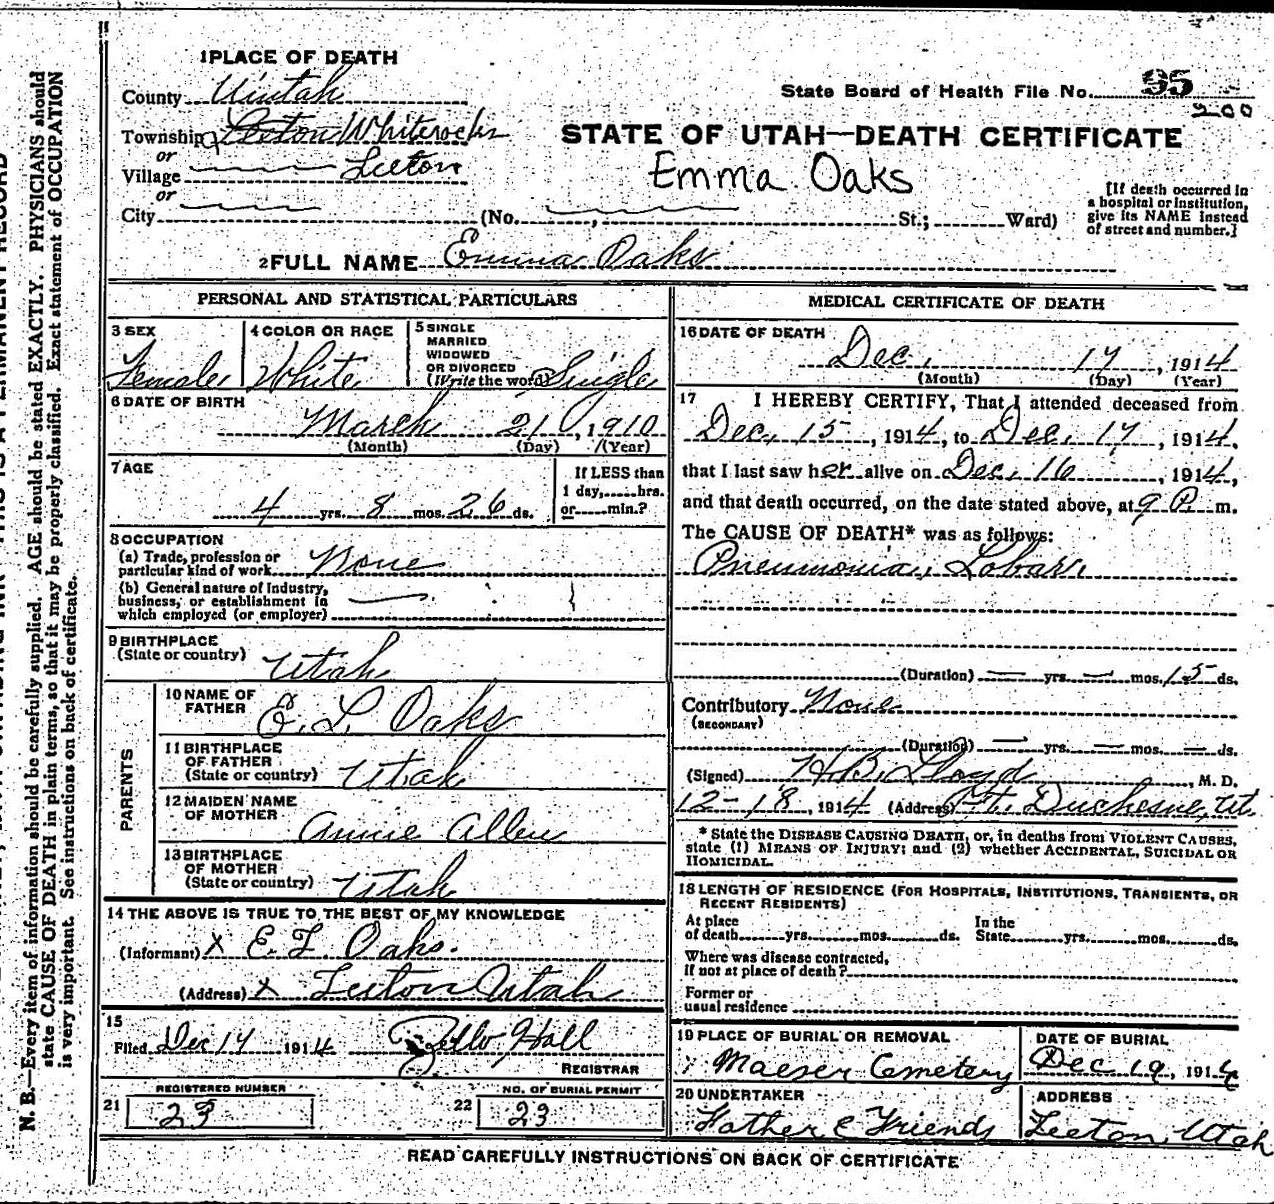 1 PLACE OF DEATH
County Uintah
State Board of Health File No. 95
200
Township Leeton Whiterocks
or
Village Leeton
or
City (No. , St.; Ward)
STATE OF UTAH—DEATH CERTIFICATE
Emma Oaks
[If death occurred in
a hospital or institution,
give its NAME instead
of street and number.]
2 FULL NAME Emma Oaks
PERSONAL AND STATISTICAL PARTICULARS
3 SEX
Female
4 COLOR OR RACE
White
5 SINGLE
MARRIED
WIDOWED
OR DIVORCED
(Write the word) Single
6 DATE OF BIRTH
March 21, 1910
(Month) (Day) (Year)
7 AGE
4 yrs. 8 mos. 26 ds.
If LESS than
1 day, hrs.
or min.?
8 OCCUPATION
(a) Trade, profession or
particular kind of work None
(b) General nature of industry,
business, or establishment in
which employed (or employer)
9 BIRTHPLACE
(State or country) Utah
PARENTS
10 NAME OF
FATHER E. L. Oaks
11 BIRTHPLACE
OF FATHER
(State or country) Utah
12 MAIDEN NAME
OF MOTHER Annie Allen
13 BIRTHPLACE
OF MOTHER
(State or country) Utah
14 THE ABOVE IS TRUE TO THE BEST OF MY KNOWLEDGE
(Informant) X E. L. Oaks.
(Address) X Leeton Utah
15
Filed Dec 17 1914 Hall
REGISTRAR
REGISTERED NUMBER
21 23
NO. OF BURIAL PERMIT
22 23
MEDICAL CERTIFICATE OF DEATH
16 DATE OF DEATH
Dec. 17, 1914
(Month) (Day) (Year)
17 I HEREBY CERTIFY, That I attended deceased from
Dec. 15, 1914, to Dec. 17, 1914,
that I last saw her alive on Dec. 16, 1914,
and that death occurred, on the date stated above, at 9 P. m.
The CAUSE OF DEATH* was as follows:
Pneumonia, Lobar.
(Duration) yrs. mos. 15 ds.
Contributory None
(SECONDARY)
(Duration) yrs. mos. ds.
(Signed) H.B. Lloyd, M. D.
12-18, 1914 (Address) Ft. Duchesne, Ut.
* State the DISEASE CAUSING DEATH, or, in deaths from VIOLENT CAUSES,
state (1) MEANS OF INJURY; and (2) whether ACCIDENTAL, SUICIDAL OR
HOMICIDAL.
18 LENGTH OF RESIDENCE (FOR HOSPITALS, INSTITUTIONS, TRANSIENTS, OR
RECENT RESIDENTS)
At place
of death yrs. mos. ds.
In the
State yrs. mos. ds.
Where was disease contracted,
If not at place of death?
Former or
usual residence
19 PLACE OF BURIAL OR REMOVAL
Maeser Cemetery
DATE OF BURIAL
Dec 19, 1914
20 UNDERTAKER
Father & Friends
ADDRESS
Leeton, Utah
READ CAREFULLY INSTRUCTIONS ON BACK OF CERTIFICATE
N. B.—Every item of information should be carefully supplied. AGE should be stated EXACTLY. PHYSICIANS should
state CAUSE OF DEATH in plain terms, so that it may be properly classified. Exact statement of OCCUPATION
is very important. See instructions on back of certificate.